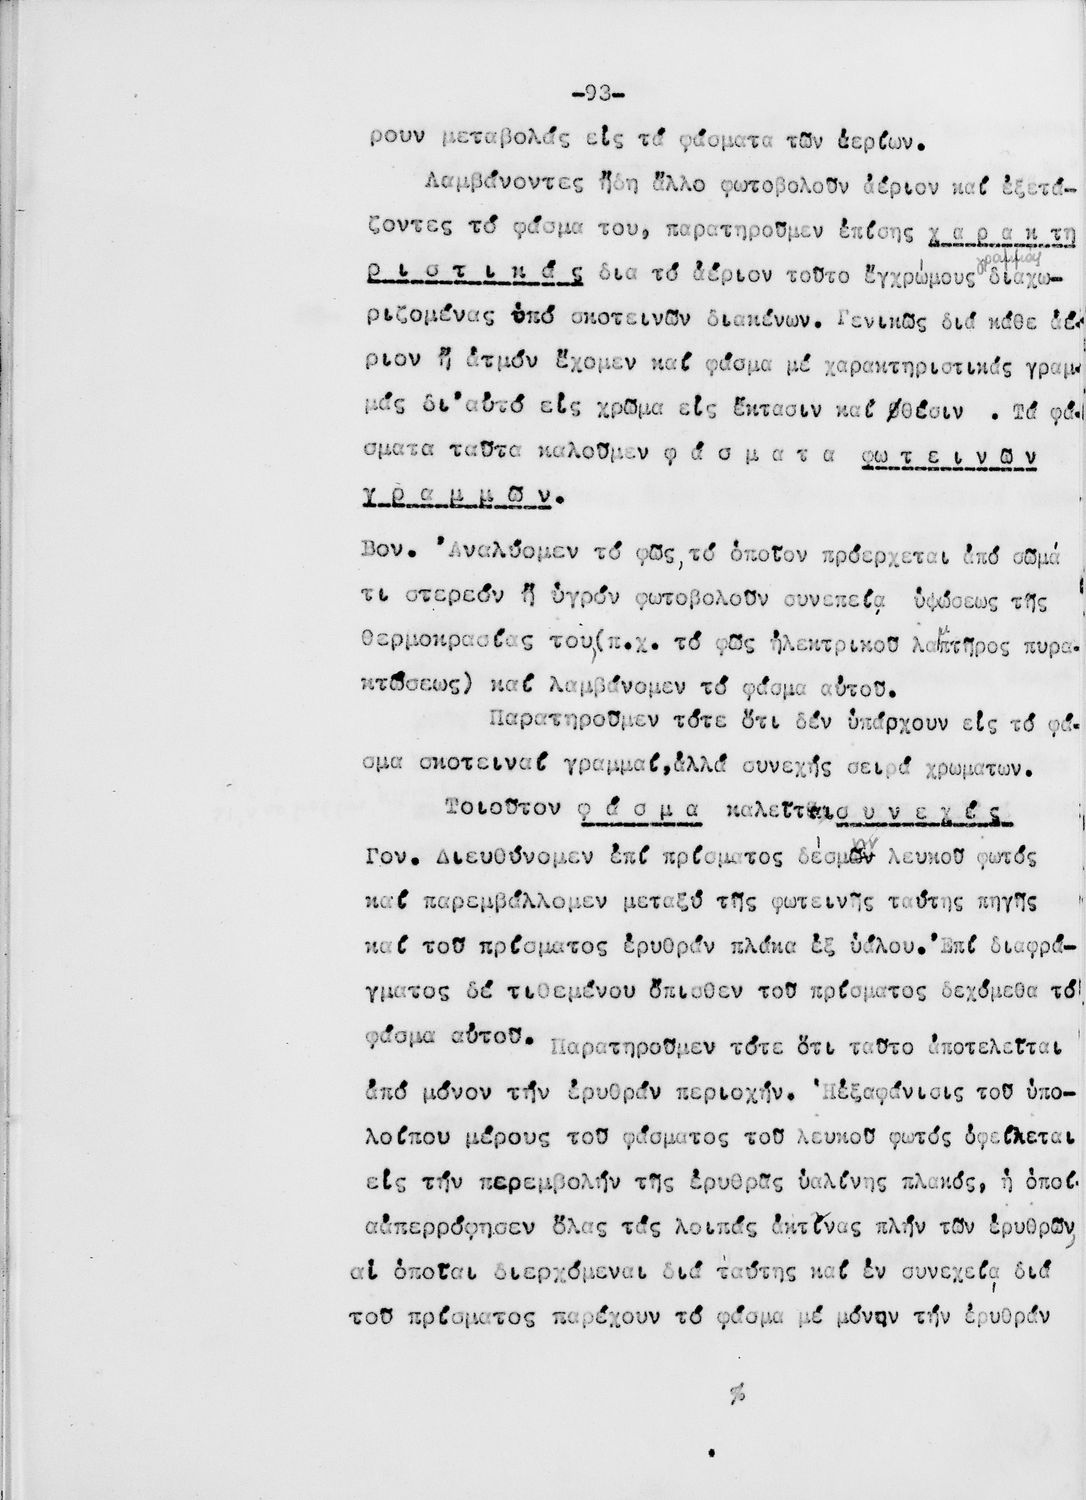 -93-
ρουν μεταβολάς εἰς τά φάσματα τῶν ἀερίων.
Λαμβάνοντες ἤδη ἄλλο φωτοβολοῦν ἀέριον καί ἐξετά-
ζοντες τό φάσμα του, παρατηροῦμεν ἐπίσης χ α ρ α κ τη
γραμμάς
ρ ι σ τ ι κ ά ς δια τό ἀέριον τοῦτο ἐγχρώμους διαχω-
ριζομένας ὑπό σκοτεινῶν διακένων. Γενικῶς διά κάθε ἀέ-
ριον ἤ ἀτμόν ἔχομεν καί φάσμα μέ χαρακτηριστικάς γραμ-
μάς δι'αὐτό εἰς χρῶμα εἰς ἔκτασιν καί θέσιν . Τά φά-
σματα ταῦτα καλοῦμεν φ ά σ μ α τ α φω τ ε ι ν ῶ ν
γ ρ α μ μ ῶ ν.
Βον. 'Αναλύομεν τό φῶς, τό ὁποῖον πρόερχεται ἀπό σῶμά
τι στερεόν ἤ ὑγρόν φωτοβολοῦν συνεπείᾳ ὑψώσεως τῆς
θερμοκρασίας του, (π.χ. τό φῶς ἠλεκτρικοῦ λαμπτῆρος πυρα-
κτώσεως) καί λαμβάνομεν τό φάσμα αὐτοῦ.
Παρατηροῦμεν τότε ὅτι δέν ὑπάρχουν εἰς τό φά-
σμα σκοτειναί γραμμαί,ἀλλά συνεχής σειρά χρωματων.
Τοιοῦτον φ ά σ μ α καλεῖται σ υ ν ε χ έ ς
Γον. Διευθύνομεν ἐπί πρίσματος δέσμην λευκοῦ φωτός
καί παρεμβάλλομεν μεταξύ τῆς φωτεινῆς ταύτης πηγῆς
καί τοῦ πρίσματος ἐρυθράν πλάκα ἐξ ὑάλου.'Επί διαφρά-
γματος δέ τιθεμένου ὄπισθεν τοῦ πρίσματος δεχόμεθα τό
φάσμα αὐτοῦ. Παρατηροῦμεν τότε ὅτι ταῦτο ἀποτελεῖται
ἀπό μόνον τήν ἐρυθράν περιοχήν. 'Ηἐξαφάνισις τοῦ ὑπο-
λοίπου μέρους τοῦ φάσματος τοῦ λευκοῦ φωτός ὀφείλεται
εἰς τήν περεμβολήν τῆς ἐρυθρᾶς ὑαλίνης πλακός, ἡ ὁποί-
αἀπερρόφησεν ὅλας τάς λοιπάς ἀκτῖνας πλήν τῶν ἐρυθρῶν,
αἱ ὁποῖαι διερχόμεναι διά ταύτης καί ἐν συνεχείᾳ διά
τοῦ πρίσματος παρέχουν τό φάσμα μέ μόνην τήν ἐρυθράν